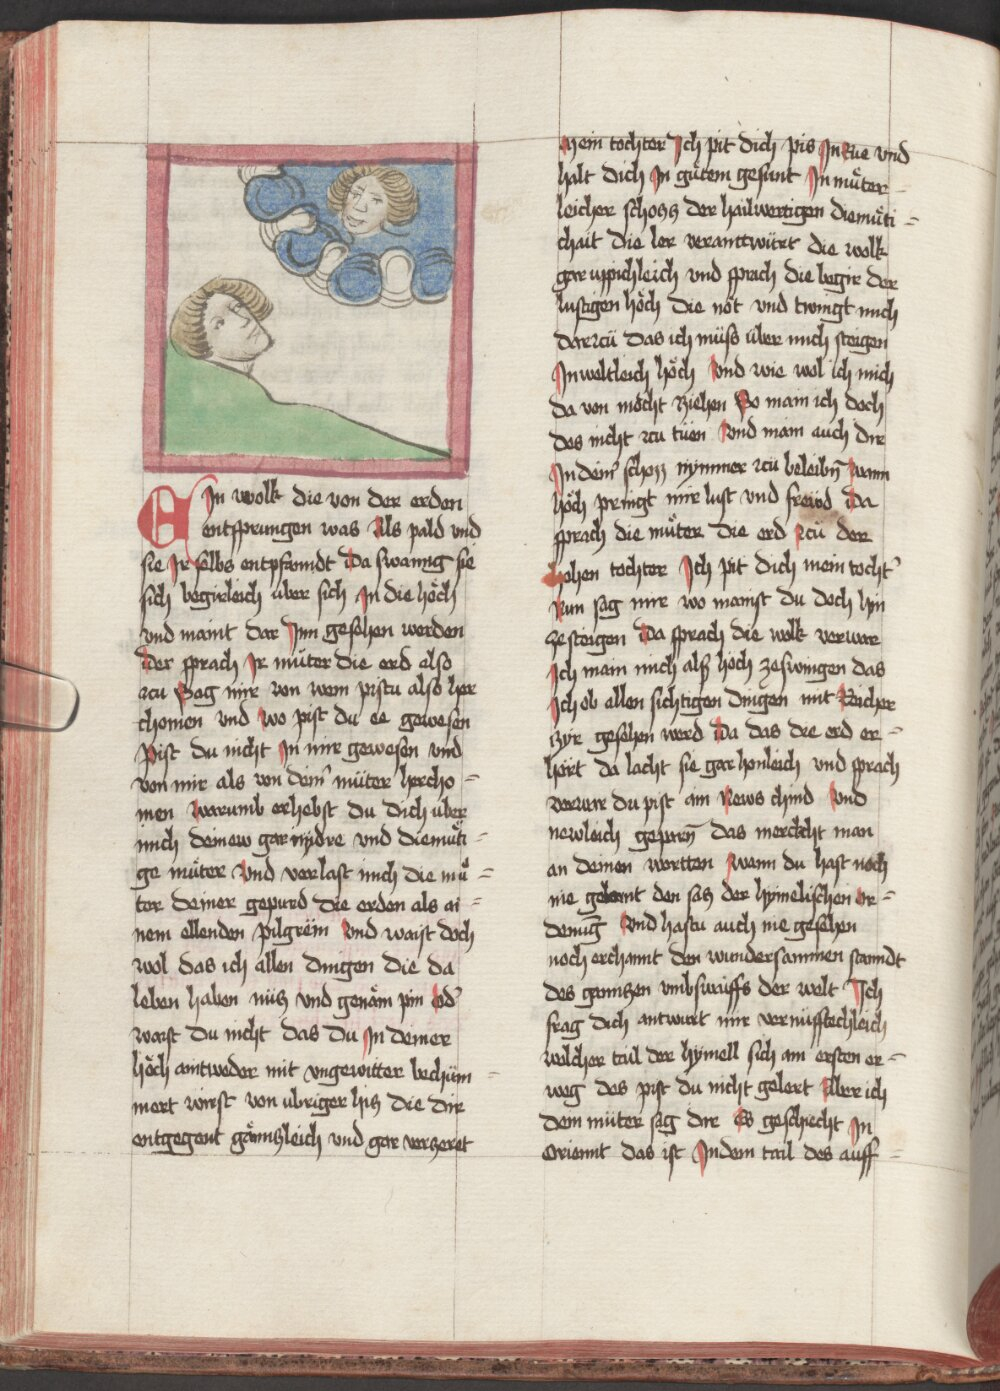 Ein wolk die von der erden
entsprungen was Als pald vnd
sie Ir selbs entpfanndt Da swanng sie
sich begirleich über sich In die höch
vnd maint dar Inn gesehen werden
Der sprach Ir müter die erd also
zcu Sag mir von wem pistu also her
chomen vnd wo pist du ee gewesen
Pist du nicht In mir gewesen vnd
von mir als von deim müter hercho=
men warumb erhebst du dich über
mich deinew gar nydre vnd diemüti=
ge müter Vnd verlast mich die mü=
ter deiner gepurd Die erden als ai=
nem ellenden pilgreim Vnd waist doch
wol das ich allen dingen die da
leben haben nütz vnd genäm pin Od'
warst du nicht das du In deiner
höch aintweder mit vngewitter bechüm=
mert wirst von vbriger hitz die dir
entgegent gänntzleich vnd gar verzeret
Mein tochter Ich pit dich pis In Rue vnd
halt dich In gütem gesunt In müter=
leicher schoss der hailwertigen diemüti=
chait die ler verantwürt die wolk
gar üppichleich vnd sprach die begir der
lustigen höch die nöt vnd twingt mich
darzcü das ich müss über mich steigen
In weltleich höch Vnd wie wol ich mich
da von möcht ziehen So main ich doch
des nicht zcu tüen Vnd main auch dir
In deim schozz nymmer zcü beleibn̄ wann
höch pringt mir lust vnd frewd Da
sprach die müter die erd zcü der
hohen tochter Ich pit dich mein tocht'
Nun sag mir wo mainst du doch hin
ze steigen Da sprach die wolk verwar
Ich main mich alss höch zeswingen das
Ich ob allen sichtigen dingen mit Reicher
zyr gesehen werd Da das die erd er=
hört da lacht sie gar honleich vnd sprach
verwar du pist ain News chind Vnd
newleich geparn̄ das merckcht man
an deinen wortten wann du hast noch
nie gelernt den sas der hymelischen or=
denūg Vnd hastu auch nie gesehen
noch erchannt den wundersammen stanndt
des ganntzen vmbswaiffs der welt Ich
frag dich antwurt mir vernüfftechleich
welcher tail der hymell sich am ersten er=
weg des pist du nicht gelert Aber ich
dein müter sag dir Es geschiecht In
Oriennt das ist In dem tail des auff=